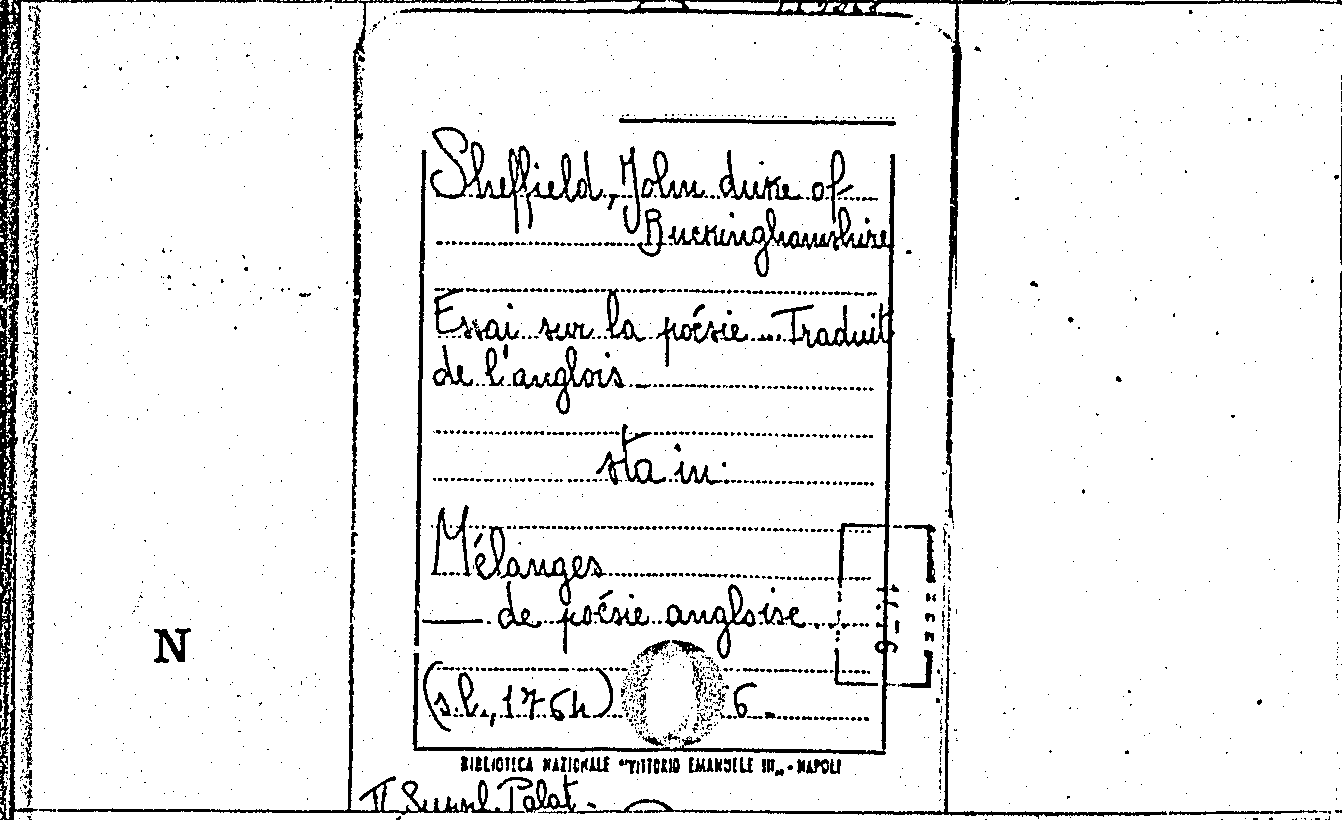 Sheffield, John duke of
Buckinghamshire
Essai sur la poésie ... Traduit
de l'anglois
sta in:
Mélanges
— de poésie angloise...
N
(s.l., 1764) 6.
BIBLIOTECA NAZIONALE "VITTORIO EMANUELE III" - NAPOLI
II Suppl. Palat.